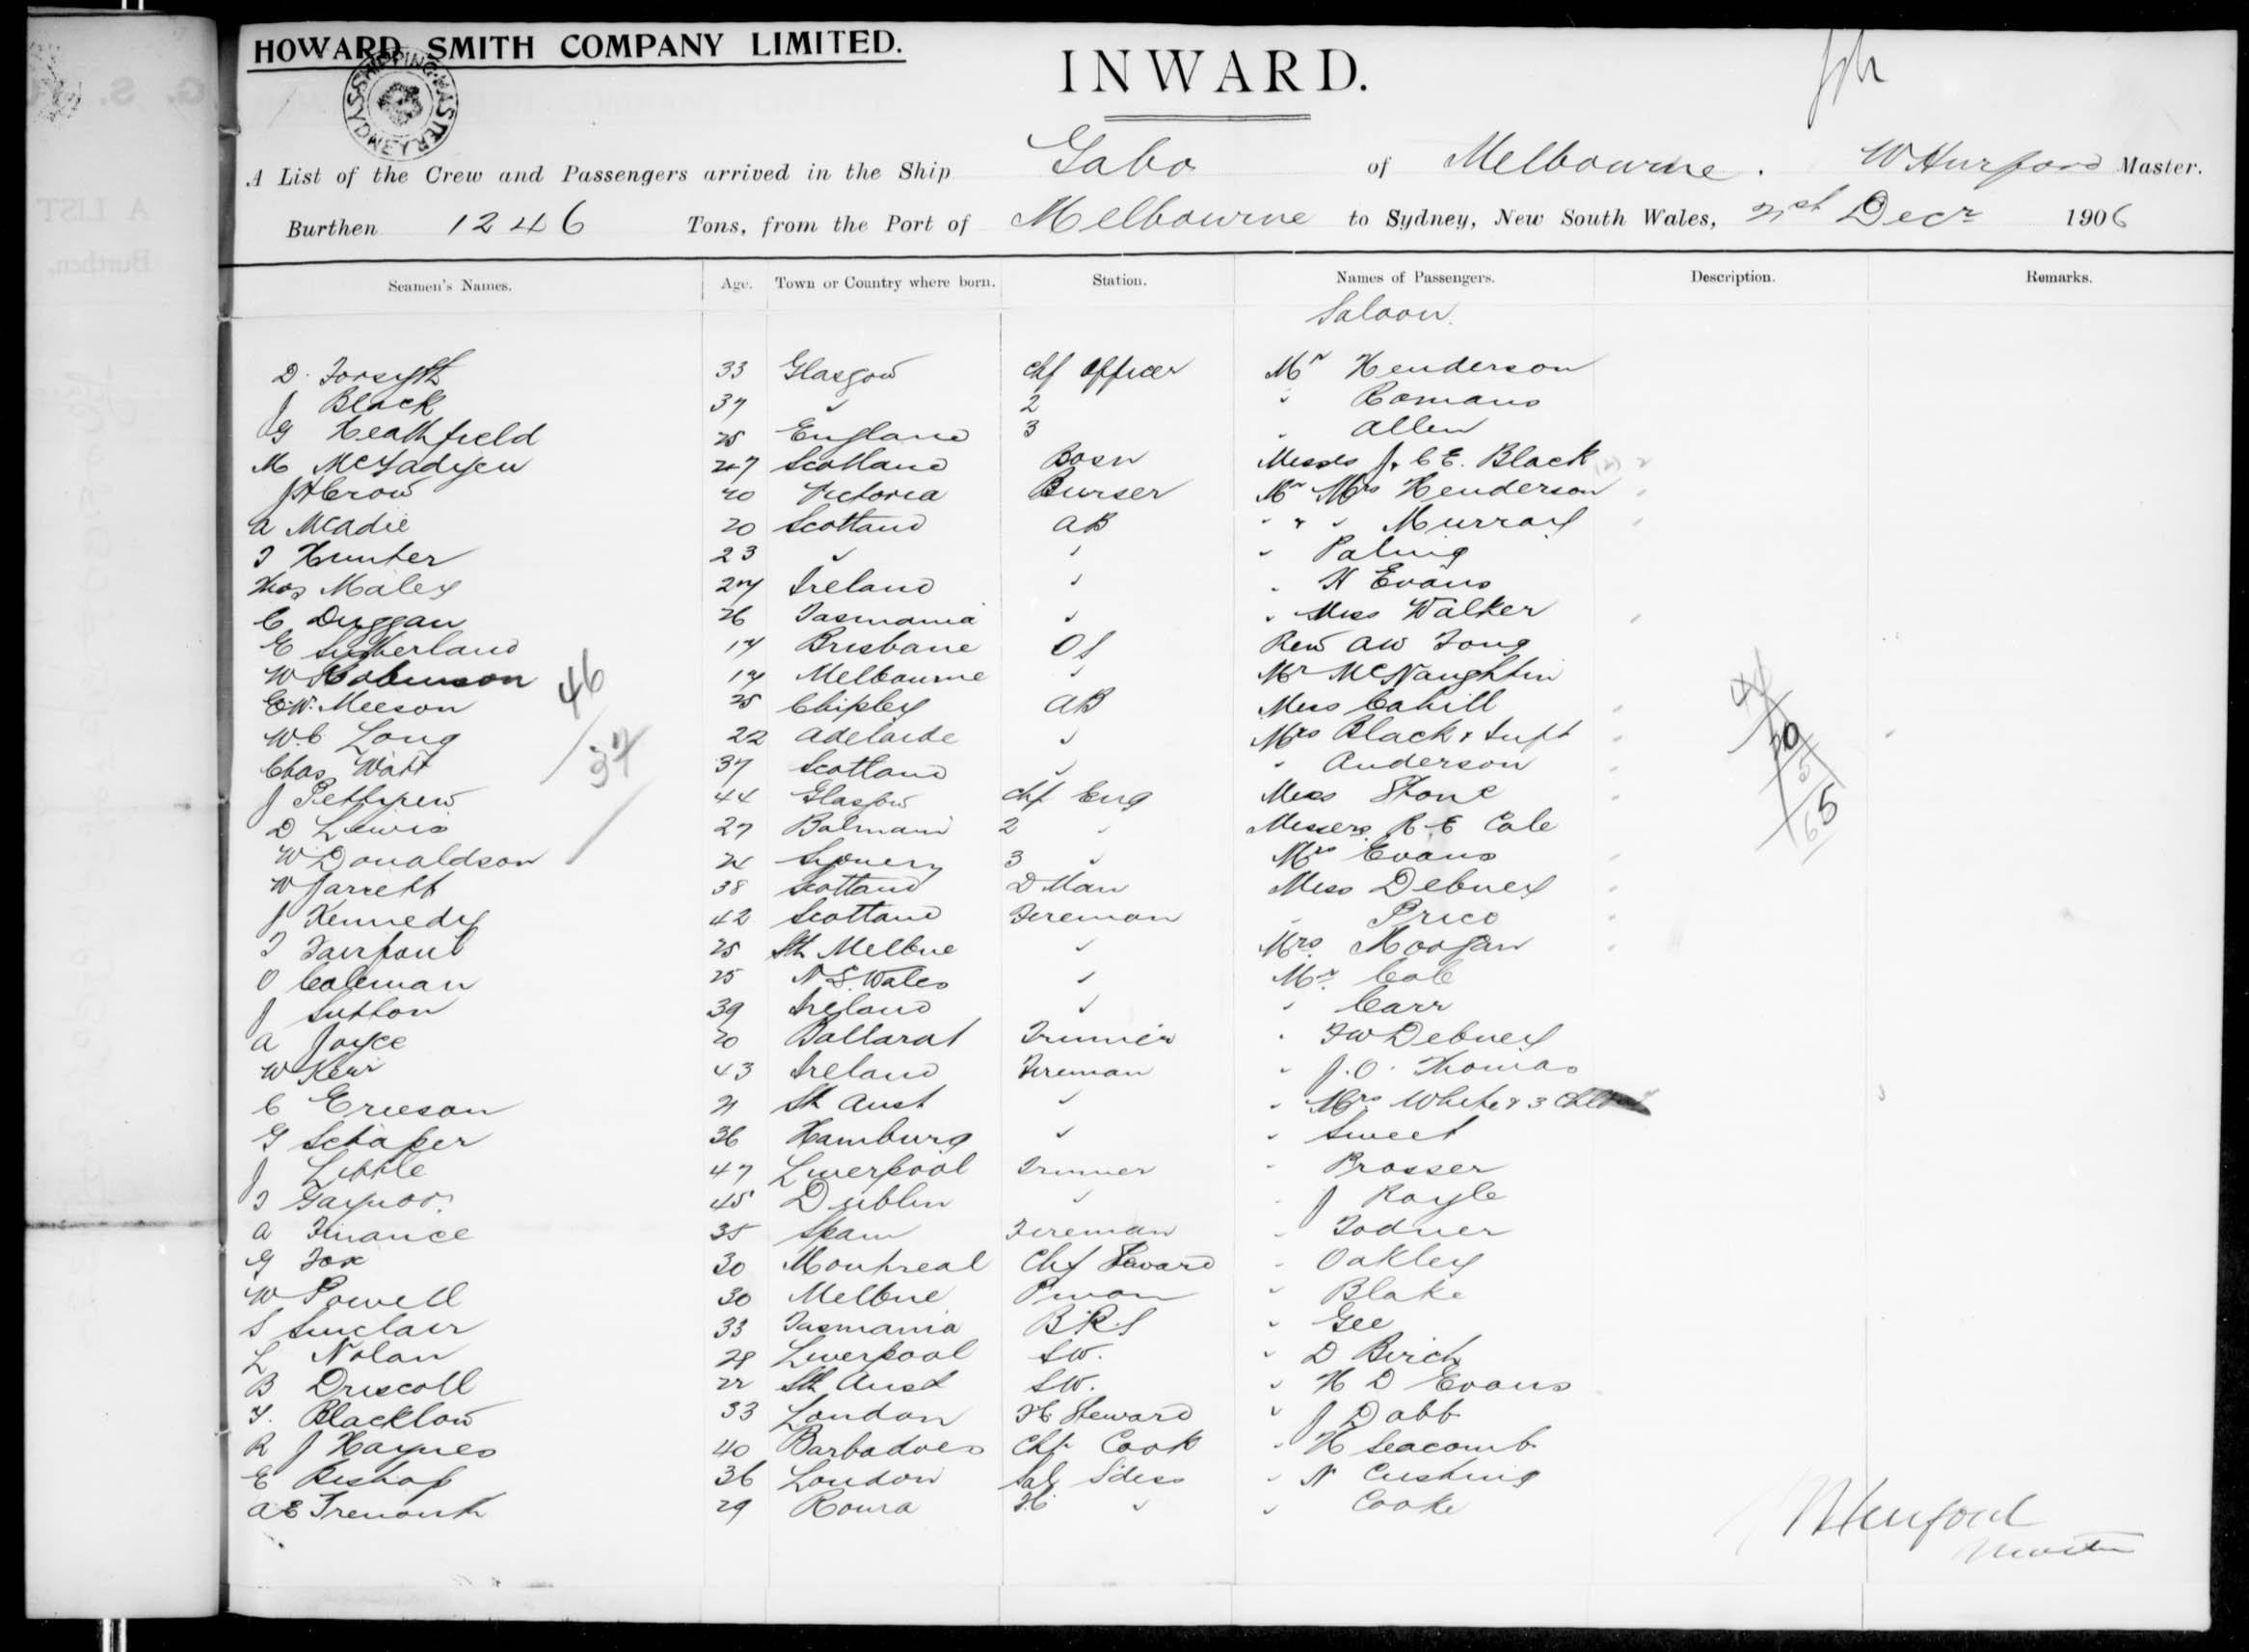 HOWARD SMITH COMPANY LIMITED.
INWARD.
SHIPPING MASTER SYDNEY
A List of the Crew and Passengers arrived in the Ship Gabo of Melbourne. W Hurford Master.
Burthen 1246 Tons, from the Port of Melbourne to Sydney, New South Wales, 21st Decr 1906
Seamen's Names. Age. Town or Country where born. Station. Names of Passengers. Description. Remarks.
Saloon.
D. Forsyth 33 Glasgow Chf Officer Mr Henderson
J Black 37 " 2 " Romans
G Heathfield 25 England 3 " Allen
M McFadyen 27 Scotland Bosn Messrs J. & E. Black
JH Crow 20 Victoria Purser Mr Mrs Henderson
A McAdie 20 Scotland AB " " " Murray
T Hunter 23 " " " Paling
Thos Maley 27 Ireland " " H Evans
C Duggan 26 Tasmania " " Miss Walker
E Sutherland 17 Brisbane OS Rev AW Tong
W Robinson 17 Melbourne " Mr McNaughtin
E.W. Meeson 25 Chipley AB Miss Cahill
W.C. Long 22 Adelaide " Mrs Black & Inft
Chas Watt 37 Scotland " " Anderson
J Pettigrew 44 Glasgow Chf Eng Miss Stone
D Lewis 27 Balmain 2 " Messers R. E Cole
W Donaldson 24 Sydney 3 " Mrs Evans
W Jarrett 38 Scotland D Man Miss Debney
J Kennedy 42 Scotland Fireman " Price
T Fairfoul 25 Sth Melbne " Mrs Hoogan
O Coleman 25 N S. Wales " Mr Cole
J Sutton 39 Ireland " " Carr
A Joyce 20 Ballarat Trimmer " FW Debney
W Keir 43 Ireland Fireman " J. O. Thomas
C Ericson 21 Sth Aust " " Mrs White & 3 Chldn
G Schaper 36 Hamburg " " Sweet
J Little 47 Liverpool Trimmer " Prosser
T Gaynor 45 Dublin " " J Royle
A Finance 35 Spain Fireman " Todner
G Fox 30 Montreal Chf Steward " Oakley
W Powell 30 Melbne Pman " Blake
S Sinclair 33 Tasmania B.R.S " Gee
L Nolan 28 Liverpool SW. " D Birch
B Driscoll 22 Sth Aust SW. " H D Evans
Y. Blacklow 33 London Steward " J Dabb
R J Haynes 40 Barbadoes Chf Cook " H Seacomb
E Bishop 36 London Sal S'dess " N Cushing
AE Tremonth 29 Rowra " " Cooke
46
37
65
W Hurford
Master